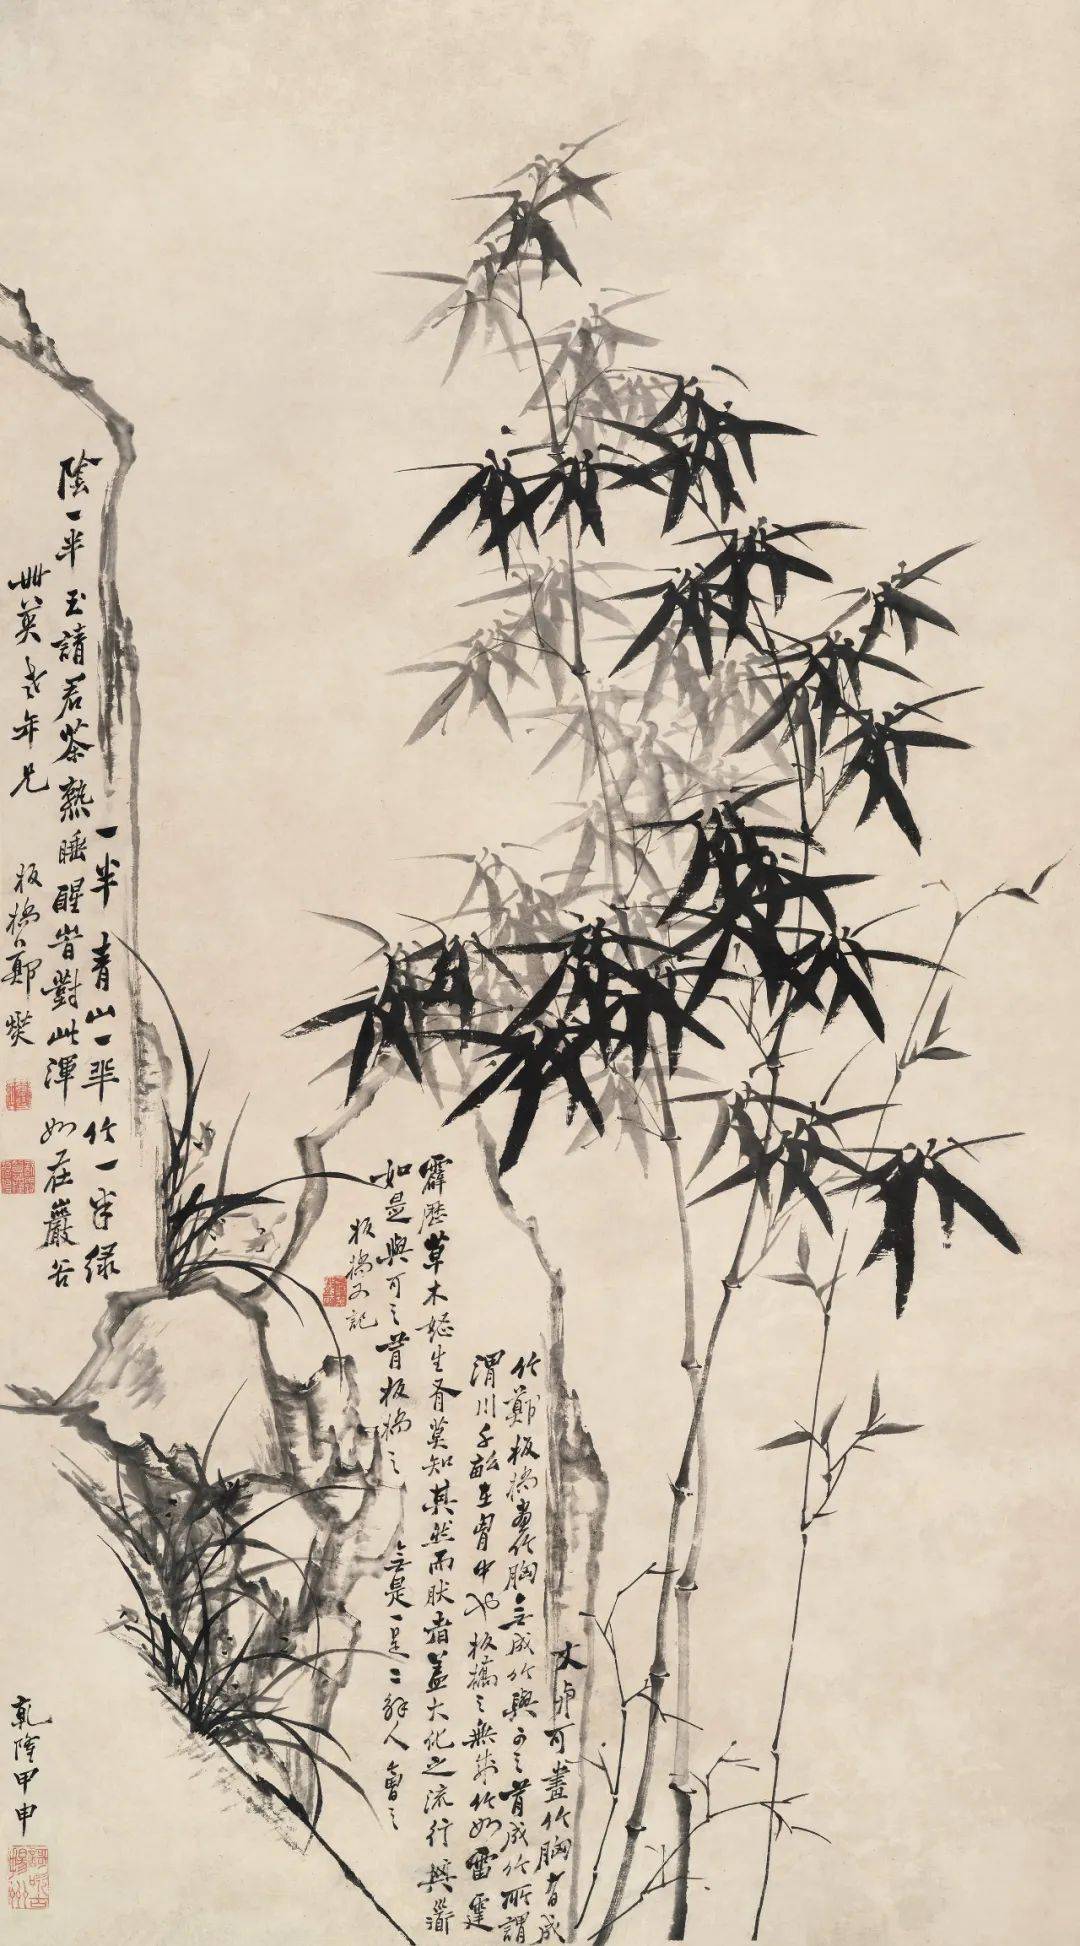 文與可畫竹胸有成
竹鄭板橋畫竹胸無成竹與可之有成竹所謂
渭川千畝在胸中也板橋之無成竹如雷霆
霹歷草木怒生有莫知其然而然者蓋大化之流行其道
如是與可之有板橋之無是一是二解人會之
板橋又記
一半青山一半竹一半绿
陰一半玉請君茶熟睡醒時對此渾如在巖谷
世英老年兄 板橋鄭燮
乾隆甲申
歌吹古揚州